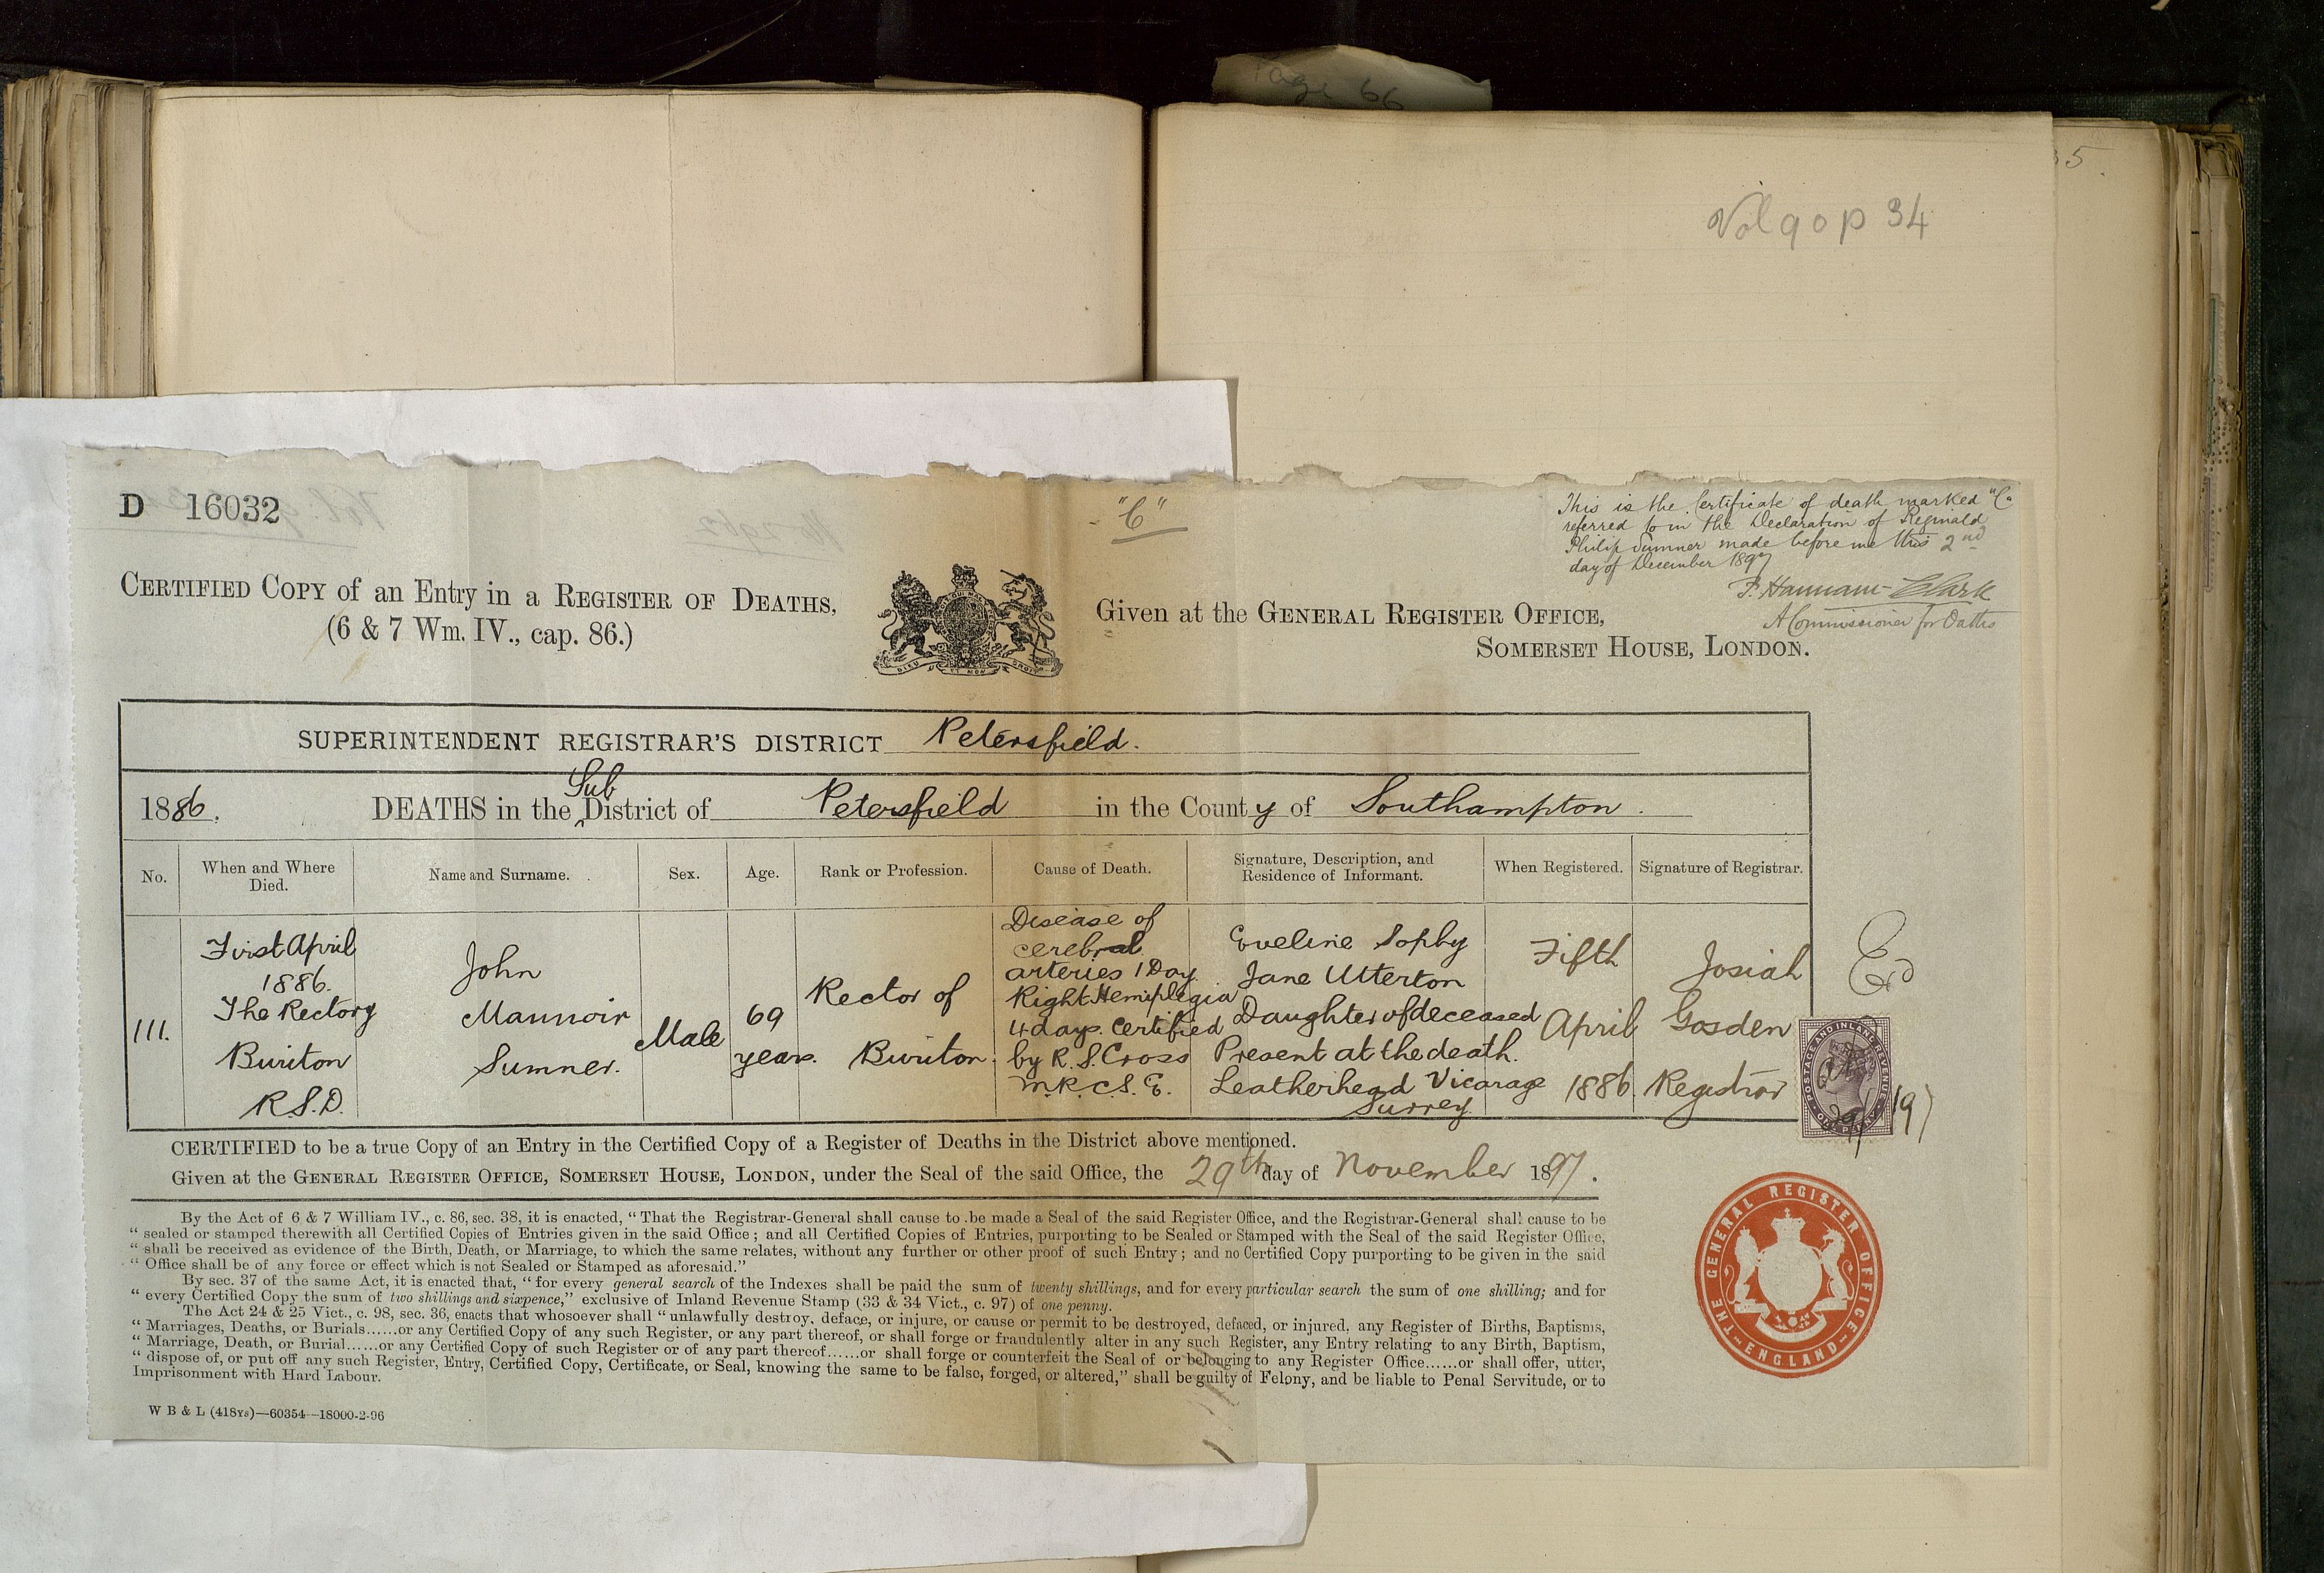 Page 66
35.
Vol 90 p 34
D 16032
"C"
This is the Certificate of death marked "C"
referred to in the Declaration of Reginald
Philip Sumner made before me this 2nd
day of December 1897
F. Hannam-Clark
A Commissioner for Oaths
CERTIFIED COPY of an Entry in a REGISTER OF DEATHS,
(6 & 7 Wm. IV., cap. 86.)
Given at the GENERAL REGISTER OFFICE,
SOMERSET HOUSE, LONDON.
SUPERINTENDENT REGISTRAR'S DISTRICT Petersfield.
1886. DEATHS in the Sub District of Petersfield in the County of Southampton.
No.
When and Where
Died.
Name and Surname.
Sex.
Age.
Rank or Profession.
Cause of Death.
Signature, Description, and
Residence of Informant.
When Registered.
Signature of Registrar.
111.
First April
1886.
The Rectory
Buriton
R.S.D.
John
Maunoir
Sumner.
Male
69
years.
Rector of
Buriton.
Disease of
cerebral
arteries 1 Day
Right Hemiplegia
4 days. Certified
by R. S. Cross
M.R.C.S.E.
Eveline Sophy
Jane Utterton
Daughter of deceased
Present at the death.
Leatherhead Vicarage
Surrey.
Fifth
April
1886.
Josiah
Gosden
Registrar
POSTAGE AND INLAND REVENUE
ONE PENNY
CERTIFIED to be a true Copy of an Entry in the Certified Copy of a Register of Deaths in the District above mentioned.
Given at the GENERAL REGISTER OFFICE, SOMERSET HOUSE, LONDON, under the Seal of the said Office, the 29th day of November 1897.
By the Act of 6 & 7 William IV., c. 86, sec. 38, it is enacted, "That the Registrar-General shall cause to be made a Seal of the said Register Office, and the Registrar-General shall cause to be
"sealed or stamped therewith all Certified Copies of Entries given in the said Office; and all Certified Copies of Entries, purporting to be Sealed or Stamped with the Seal of the said Register Office,
"shall be received as evidence of the Birth, Death, or Marriage, to which the same relates, without any further or other proof of such Entry; and no Certified Copy purporting to be given in the said
"Office shall be of any force or effect which is not Sealed or Stamped as aforesaid."
By sec. 37 of the same Act, it is enacted that, "for every general search of the Indexes shall be paid the sum of twenty shillings, and for every particular search the sum of one shilling; and for
"every Certified Copy the sum of two shillings and sixpence," exclusive of Inland Revenue Stamp (33 & 34 Vict., c. 97) of one penny.
The Act 24 & 25 Vict., c. 98, sec. 36, enacts that whosoever shall "unlawfully destroy, deface, or injure, or cause or permit to be destroyed, defaced, or injured, any Register of Births, Baptisms,
"Marriages, Deaths, or Burials......or any Certified Copy of any such Register, or any part thereof, or shall forge or fraudulently alter in any such Register, any Entry relating to any Birth, Baptism,
"Marriage, Death, or Burial......or any Certified Copy of such Register or of any part thereof......or shall forge or counterfeit the Seal of or belonging to any Register Office......or shall offer, utter,
"dispose of, or put off any such Register, Entry, Certified Copy, Certificate, or Seal, knowing the same to be false, forged, or altered," shall be guilty of Felony, and be liable to Penal Servitude, or to
Imprisonment with Hard Labour.
W B & L (418ys)—60354—18000-2-96
THE GENERAL REGISTER OFFICE
ENGLAND